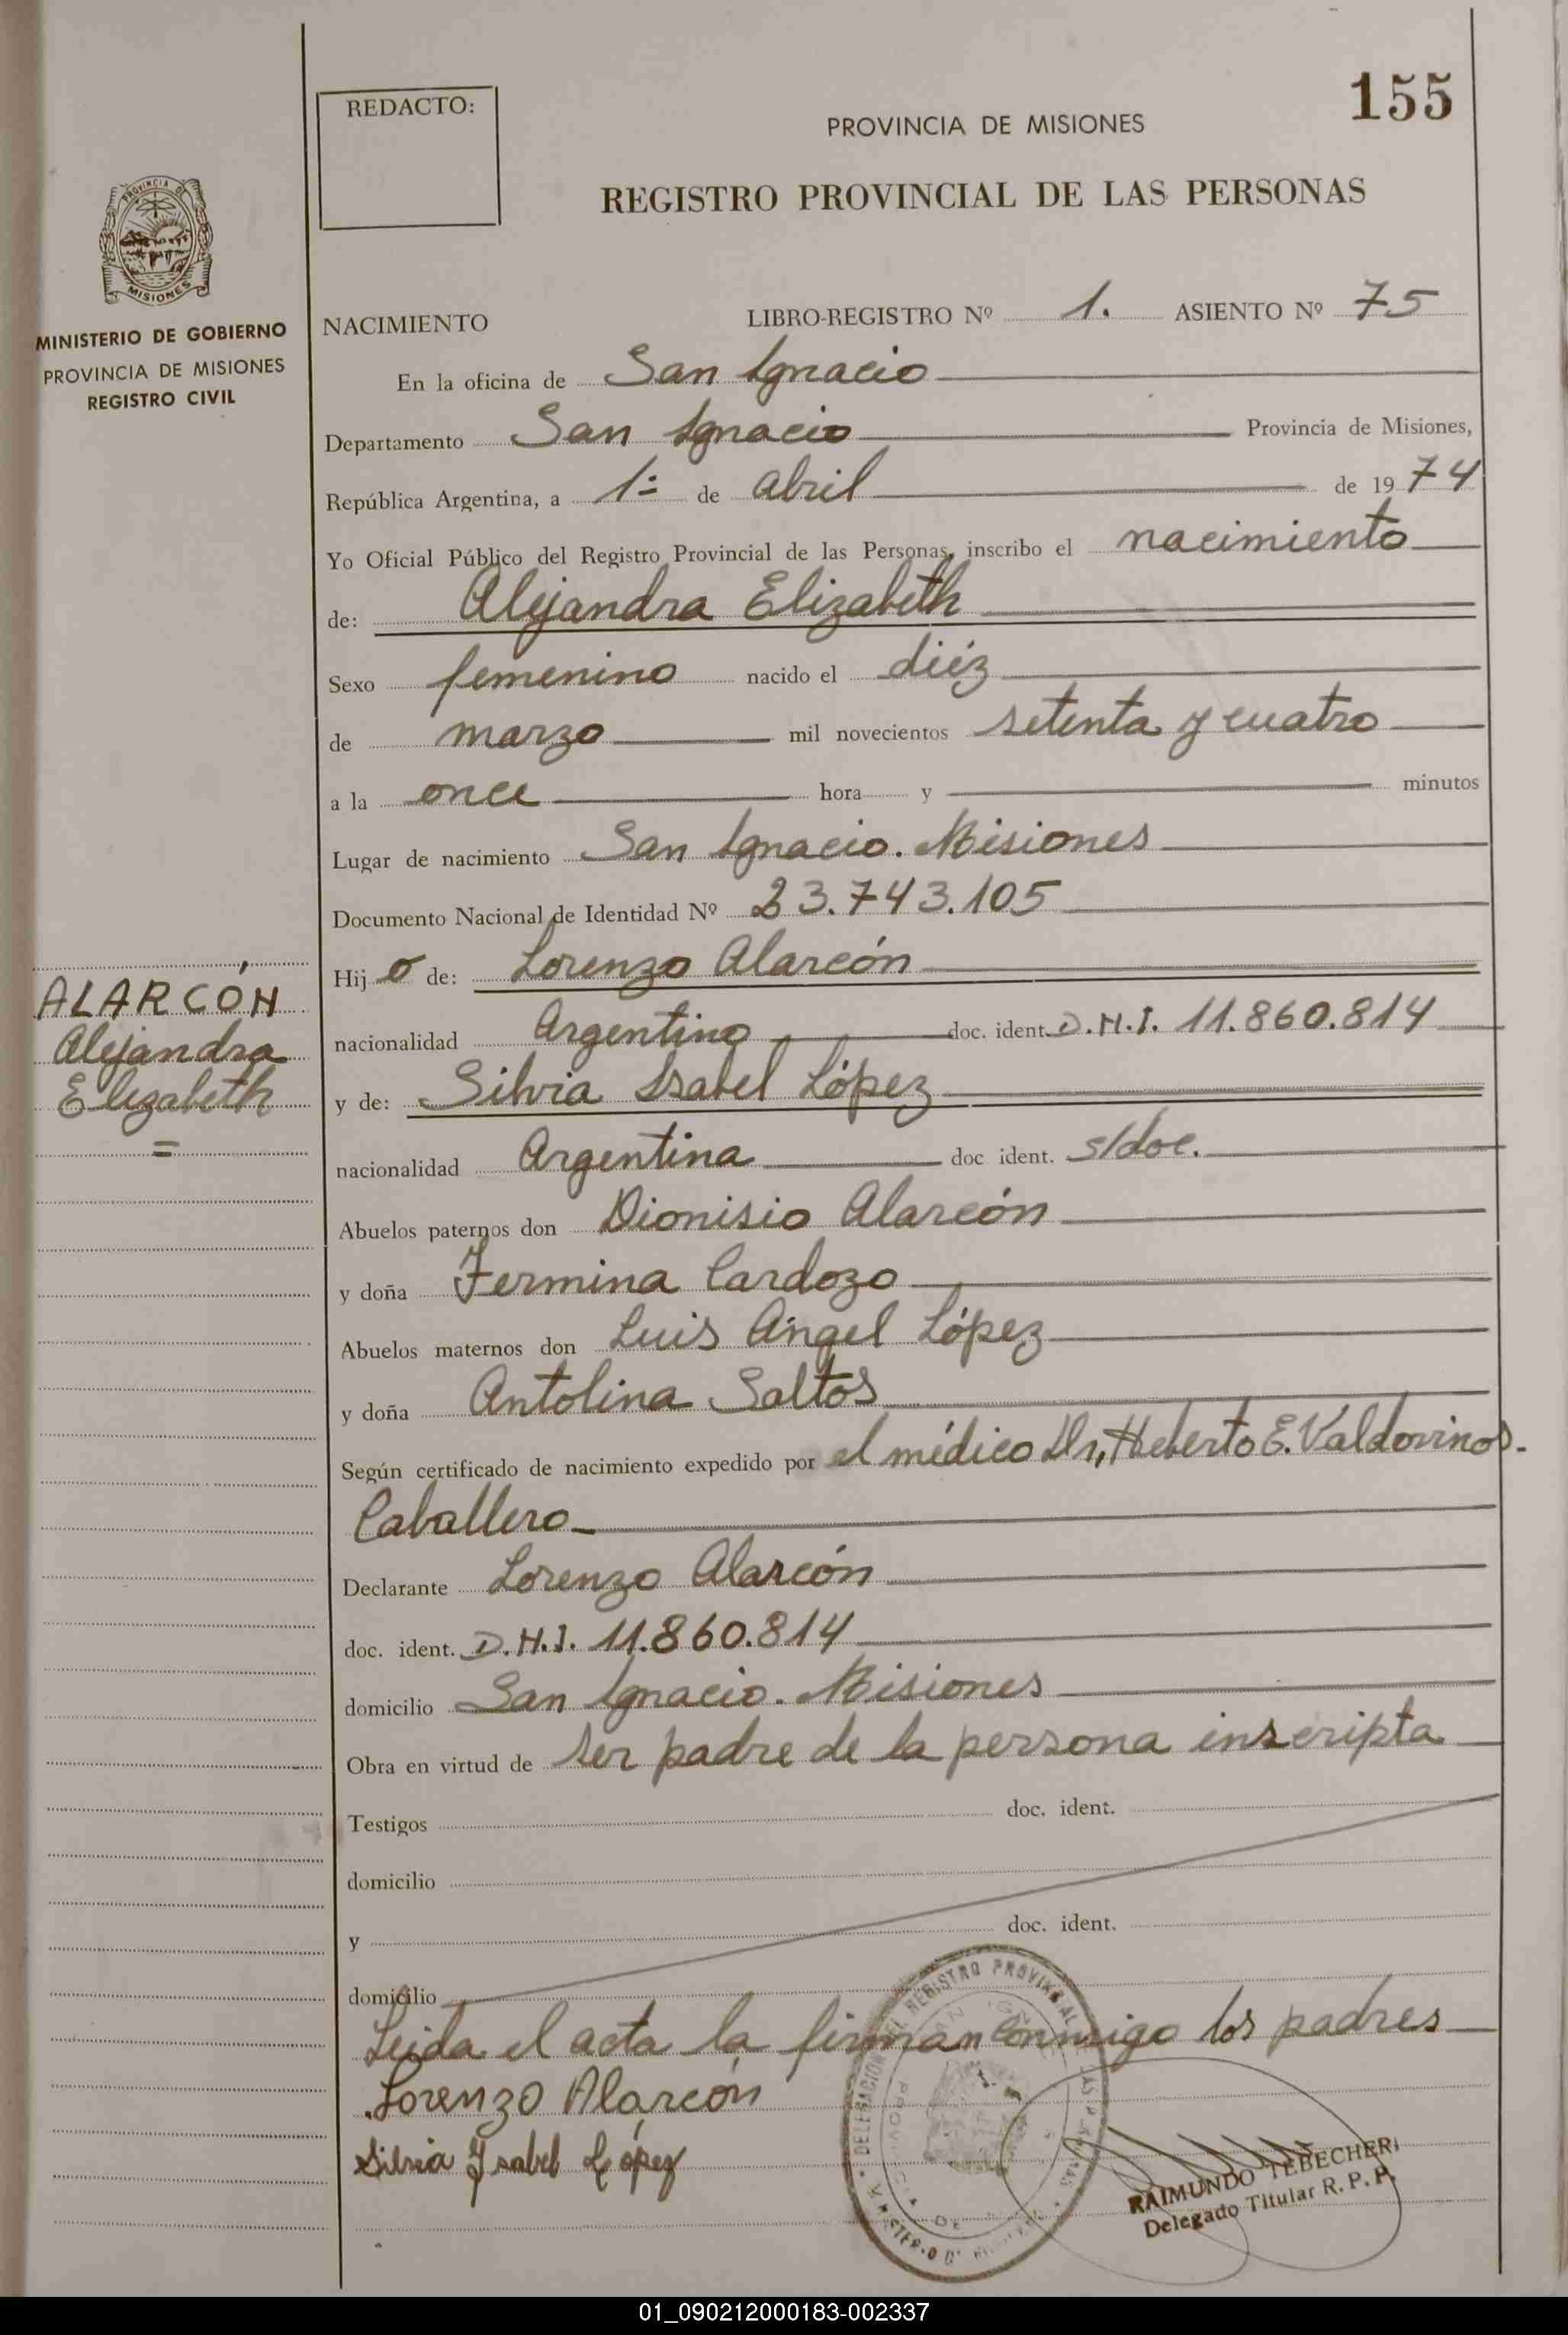 155
REDACTO:
PROVINCIA DE MISIONES
REGISTRO PROVINCIAL DE LAS PERSONAS
PROVINCIA DE
MISIONES
MINISTERIO DE GOBIERNO
PROVINCIA DE MISIONES
REGISTRO CIVIL
NACIMIENTO LIBRO-REGISTRO Nº 1. ASIENTO Nº 75
En la oficina de San Ignacio
Departamento San Ignacio Provincia de Misiones,
República Argentina, a 1º de abril de 1974
Yo Oficial Público del Registro Provincial de las Personas, inscribo el nacimiento
de: Alejandra Elizabeth
Sexo femenino nacido el diéz
de marzo mil novecientos setenta y cuatro
a la once hora y minutos
Lugar de nacimiento San Ignacio. Misiones
Documento Nacional de Identidad Nº 23.743.105
Hij o de: Lorenzo Alarcón
ALARCÓN
Alejandra
Elizabeth
=
nacionalidad Argentino doc. ident. D.N.I. 11.860.814
y de: Silvia Isabel López
nacionalidad Argentina doc ident. s/doc.
Abuelos paternos don Dionisio Alarcón
y doña Fermina Cardozo
Abuelos maternos don Luis Angel López
y doña Antolina Saltos
Según certificado de nacimiento expedido por el médico Dr, Heberto E. Valdovinos.
Caballero
Declarante Lorenzo Alarcón
doc. ident. D.N.I. 11.860.814
domicilio San Ignacio. Misiones
Obra en virtud de ser padre de la persona inscripta
Testigos doc. ident.
domicilio
y doc. ident.
domicilio
Leida el acta la firman conmigo los padres
Lorenzo Alarcón
Silvia Isabel López
RAIMUNDO TEBECHERI
Delegado Titular R. P. P.
01_090212000183-002337